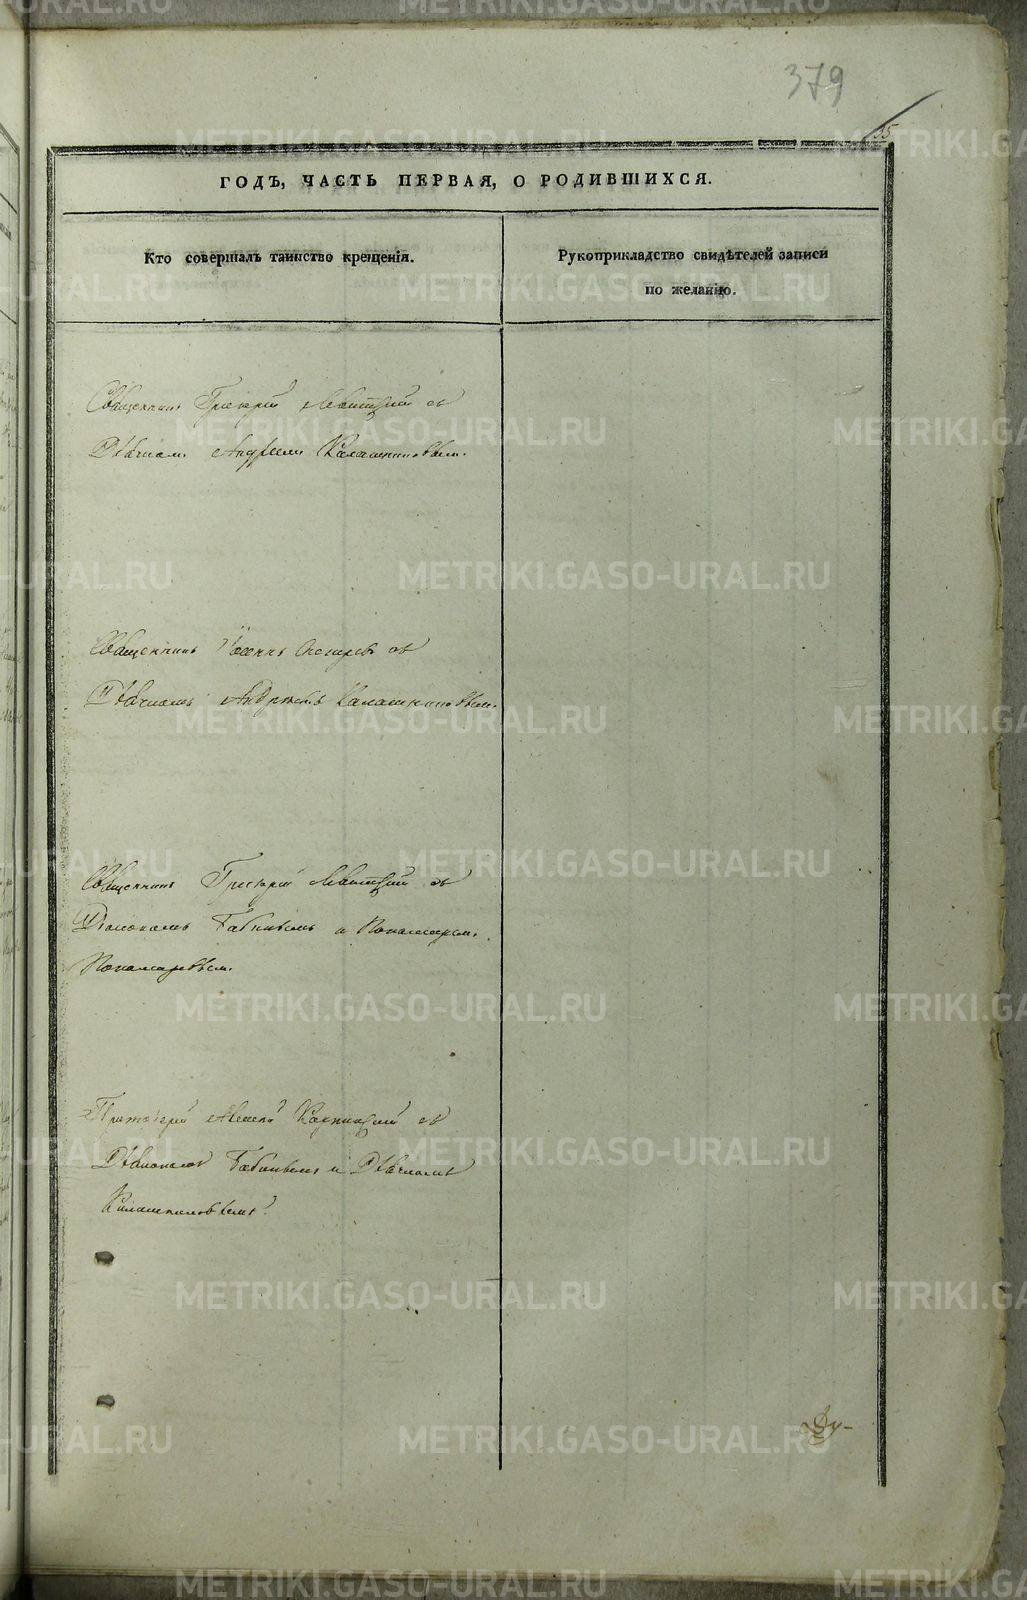 379
35
ГОДЪ, ЧАСТЬ ПЕРВАЯ, О РОДИВШИХСЯ.
Кто совершалъ таинство крещенія.
Рукоприкладство свидѣтелей записи
по желанію.
Священникъ Григорій Левитскій съ
Дьячкомъ Андреемъ Калашниковымъ.
Священникъ съ
Дьячкомъ Андреемъ Калашниковымъ.
Священникъ Григорій Левитскій съ
Діакономъ Бабинымъ и Пономаремъ
Пономаревымъ.
Протоіерей Алексѣй съ
Діакономъ Бабинымъ и Дьячкомъ
Калашниковымъ.
METRIKI.GASO-URAL.RU